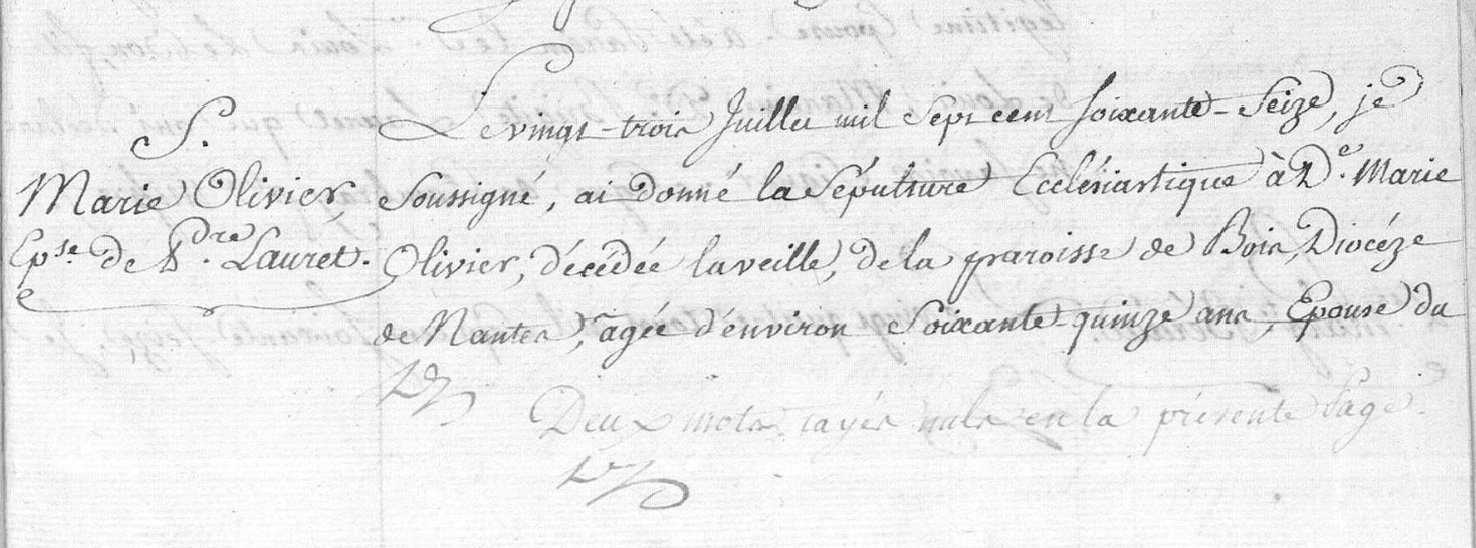 S.
Marie Olivier
Epse. de P.dre Lauret.
Le vingt-trois Juillet mil sept cent soixante-seize, je
soussigné, ai donné la sépulture Ecclésiastique à D.e Marie
Olivier, décédée la veille, de la paroisse de Bois, Diocéze
de Nantes, agée d'environ soixante quinze ans, Epouse du
Deux mots rayés nuls en la présente Page.